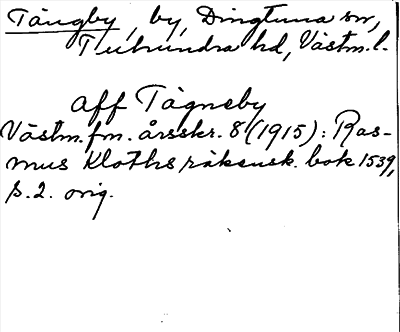 Tångby, by, Dingtuna sn,
Tuhundra hd, Västm. l.
aff Tägneby
Västm. fm. årsskr. 8 (1915): Ras-
mus Kloths räkensk. bok 1539,
s. 2. orig.